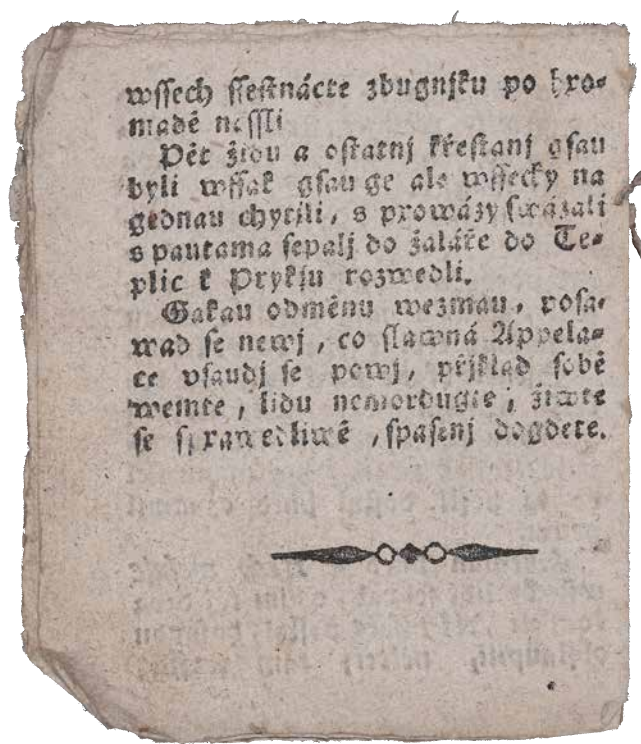 wſſech ſſeſtnácte zbugnjku po hro-
madě neſſli
Pět židu a oſtatnj křeſtanj gſau
byli wſſak gſau ge ale wſſecky na
gednau chytili, s prowázy ſwázali
s pautama ſepalj do žaláře do Te-
plic k Prykſu rozwedli.
Gakau odměnu wezmau, poſa-
wad ſe newj, co ſlawná Appela-
ce vſaudj ſe powj, přjklad ſobě
wemte, lidu nemordugte, žiwte
ſe ſprawedliwě, ſpaſenj dogdete.